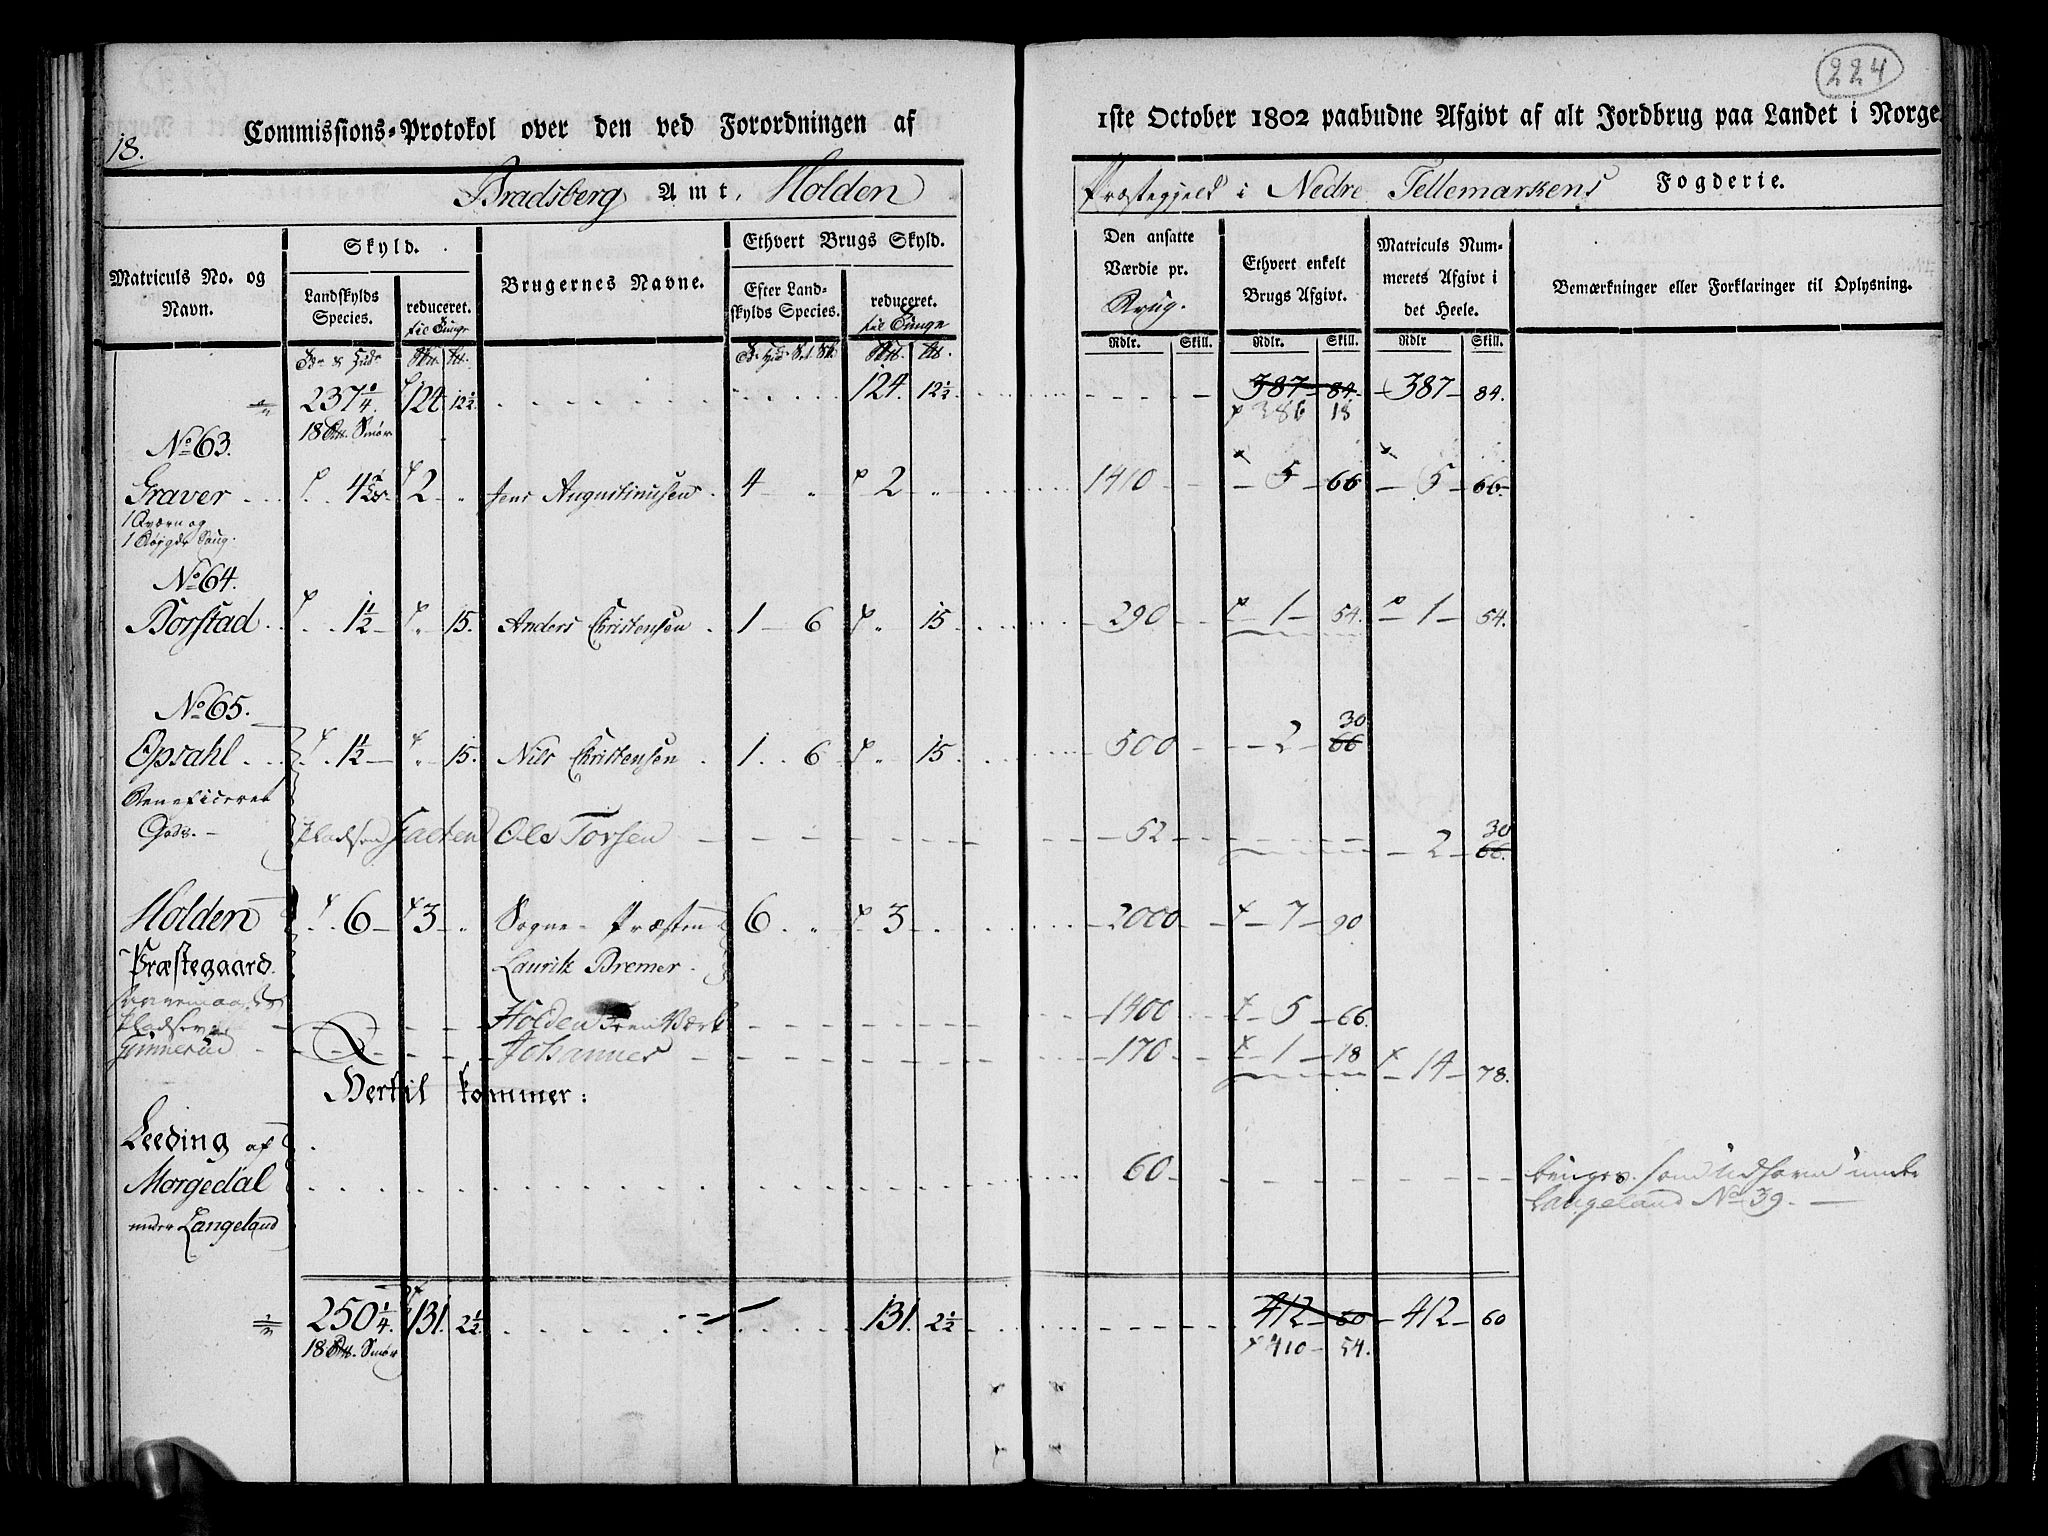 224
18.
Commissions-Protokol over den ved Forordningen af 1ste October 1802 paabudne Afgivt af alt Jordbrug paa Landet i Norge.
Bradsberg Amt, Holden Præstegjeld i Nedre Tellemarkens Fogderie.
Matriculs No. og Navn.
Skyld.
Landskylds Species.
reduceret. til Tunge
Brugernes Navne.
Ethvert Brugs Skyld.
Efter Landskylds Species.
reduceret. til Tunge
Den ansatte Værdie pr. Brug.
Ethvert enkelt Brugs Afgivt.
Matriculs Nummerets Afgivt i det Heele.
Bemærkninger eller Forklaringer til Oplysning.
Rdlr. Skill. Rdlr. Skill. Rdlr Skill.
237 1/4. 124 12 1/2. 124. 12 1/2 387 84. 387 84.
18 Smør 386 18
No 63.
Graver 4 2 Jens Augustinusen 4 2 1410 5 66 5 66
1 Qværn og
1 Saug.
No 64.
Borstad 1 1/2 15. Anders Christensen 1 6 15 290 1 54. 1 54.
No 65.
30
Opsahl 1 1/2 15. Nils Christensen 1 6 15 500 2 66
Beneficeret
30
Gods. Pladsen Ole Torsen 52 2 66.
Holden 6 3 Sogne-Præsten 6 3 2000 7 90
Præstegaard. Laurits Bremer.
Pladser Holden Jern Værk 1400 5 66.
Gunnerud Johannes 170 1 18 14 78.
Hertil kommer:
Leeding af
Morgedal 60 bruges som under
under Langeland Langeland No 39.
250 1/4. 131. 2 1/2. 131. 2 1/2 412 60 412 60
18 Smør 410 54.